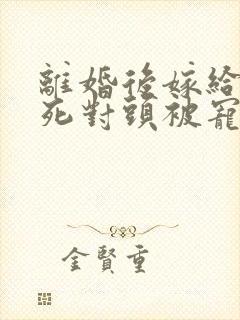 離婚後嫁給
死對頭被寵
金賢重